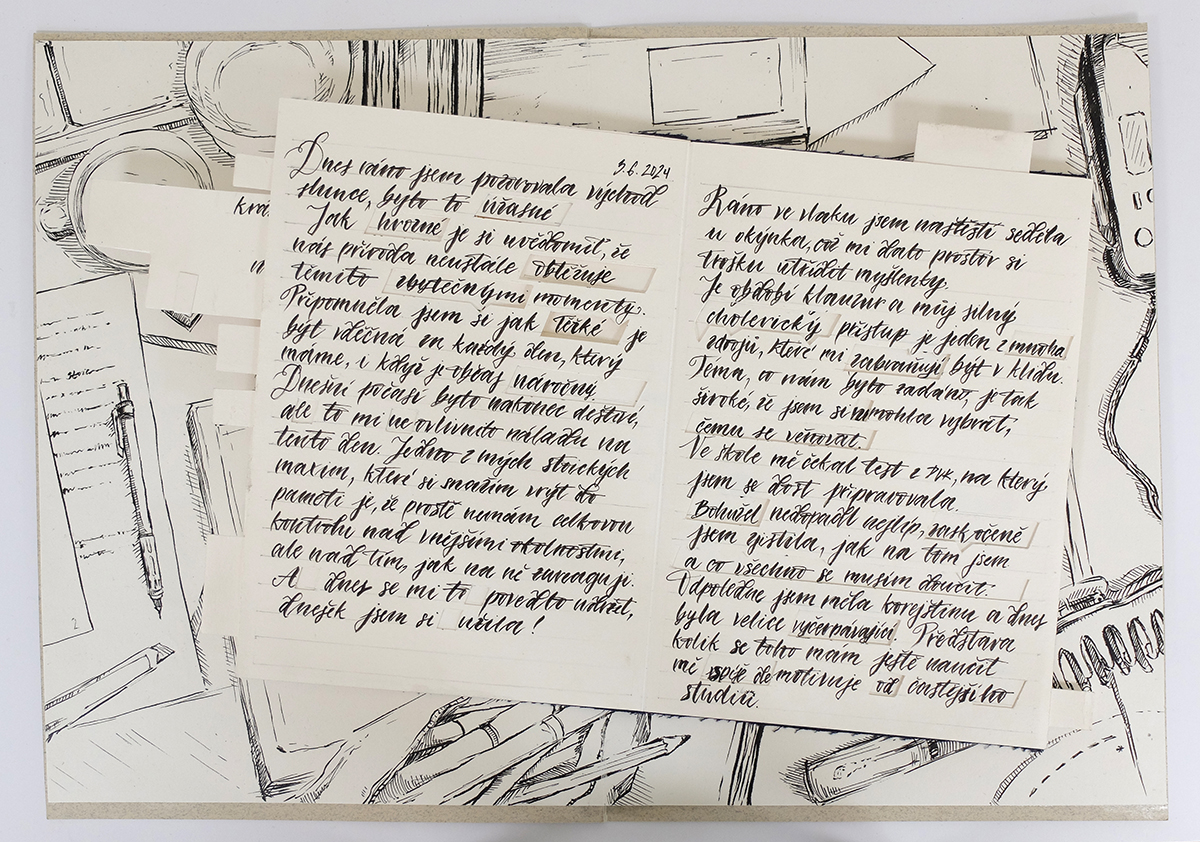 krá
3.6.2024
Dnes ráno jsem pozorovala východ
slunce, bylo to úžasné
Jak hrozné je si uvědomit, že
nás příroda neustále obtěžuje
těmito zbytečnými momenty.
Připomněla jsem si jak těžké je
být vděčná za každý den, který
máme, i když je občas náročný.
Dnešní počasí bylo nakonec deštivé,
ale to mi neovlivnilo náladu na
tento den. Jedno z mých stoických
maxim, které si snažím vrýt do
paměti je, že prostě nemám celkovou
kontrolu nad vnějšími okolnostmi,
ale nad tím, jak na ně zareaguji.
A dnes se mi to povedlo udržet,
dnešek jsem si užila!
Ráno ve vlaku jsem naštěstí seděla
u okýnka, což mi dalo prostor si
trošku utřídit myšlenky.
Je období klauzur a můj silný
cholerický přístup je jeden z mnoha
zdrojů, které mi zabraňují být v klidu.
Téma, co nám bylo zadáno, je tak
široké, že jsem si nemohla vybrat,
čemu se věnovat.
Ve škole mě čekal test z na který
jsem se dost připravovala.
Bohužel nedopadl nejlíp, zaskočeně
jsem zjistila, jak na tom jsem
a co všechno se musím doučit.
Odpoledne jsem měla korejštinu a dnes
byla velice vyčerpávající. Představa
kolik se toho mám ještě naučit
mě spíše demotivuje od častějšího
studia.
2